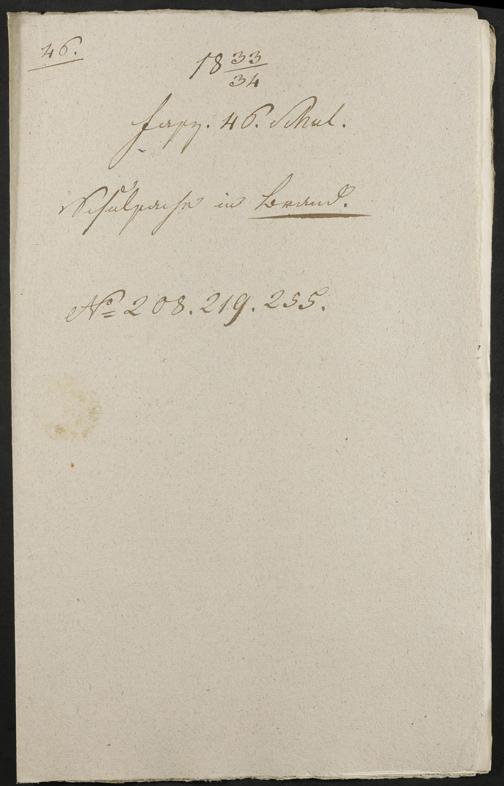 46.
18 33/34
Fasz. 46. Schul.
Schulsache in Brand.
No 208. 219. 255.